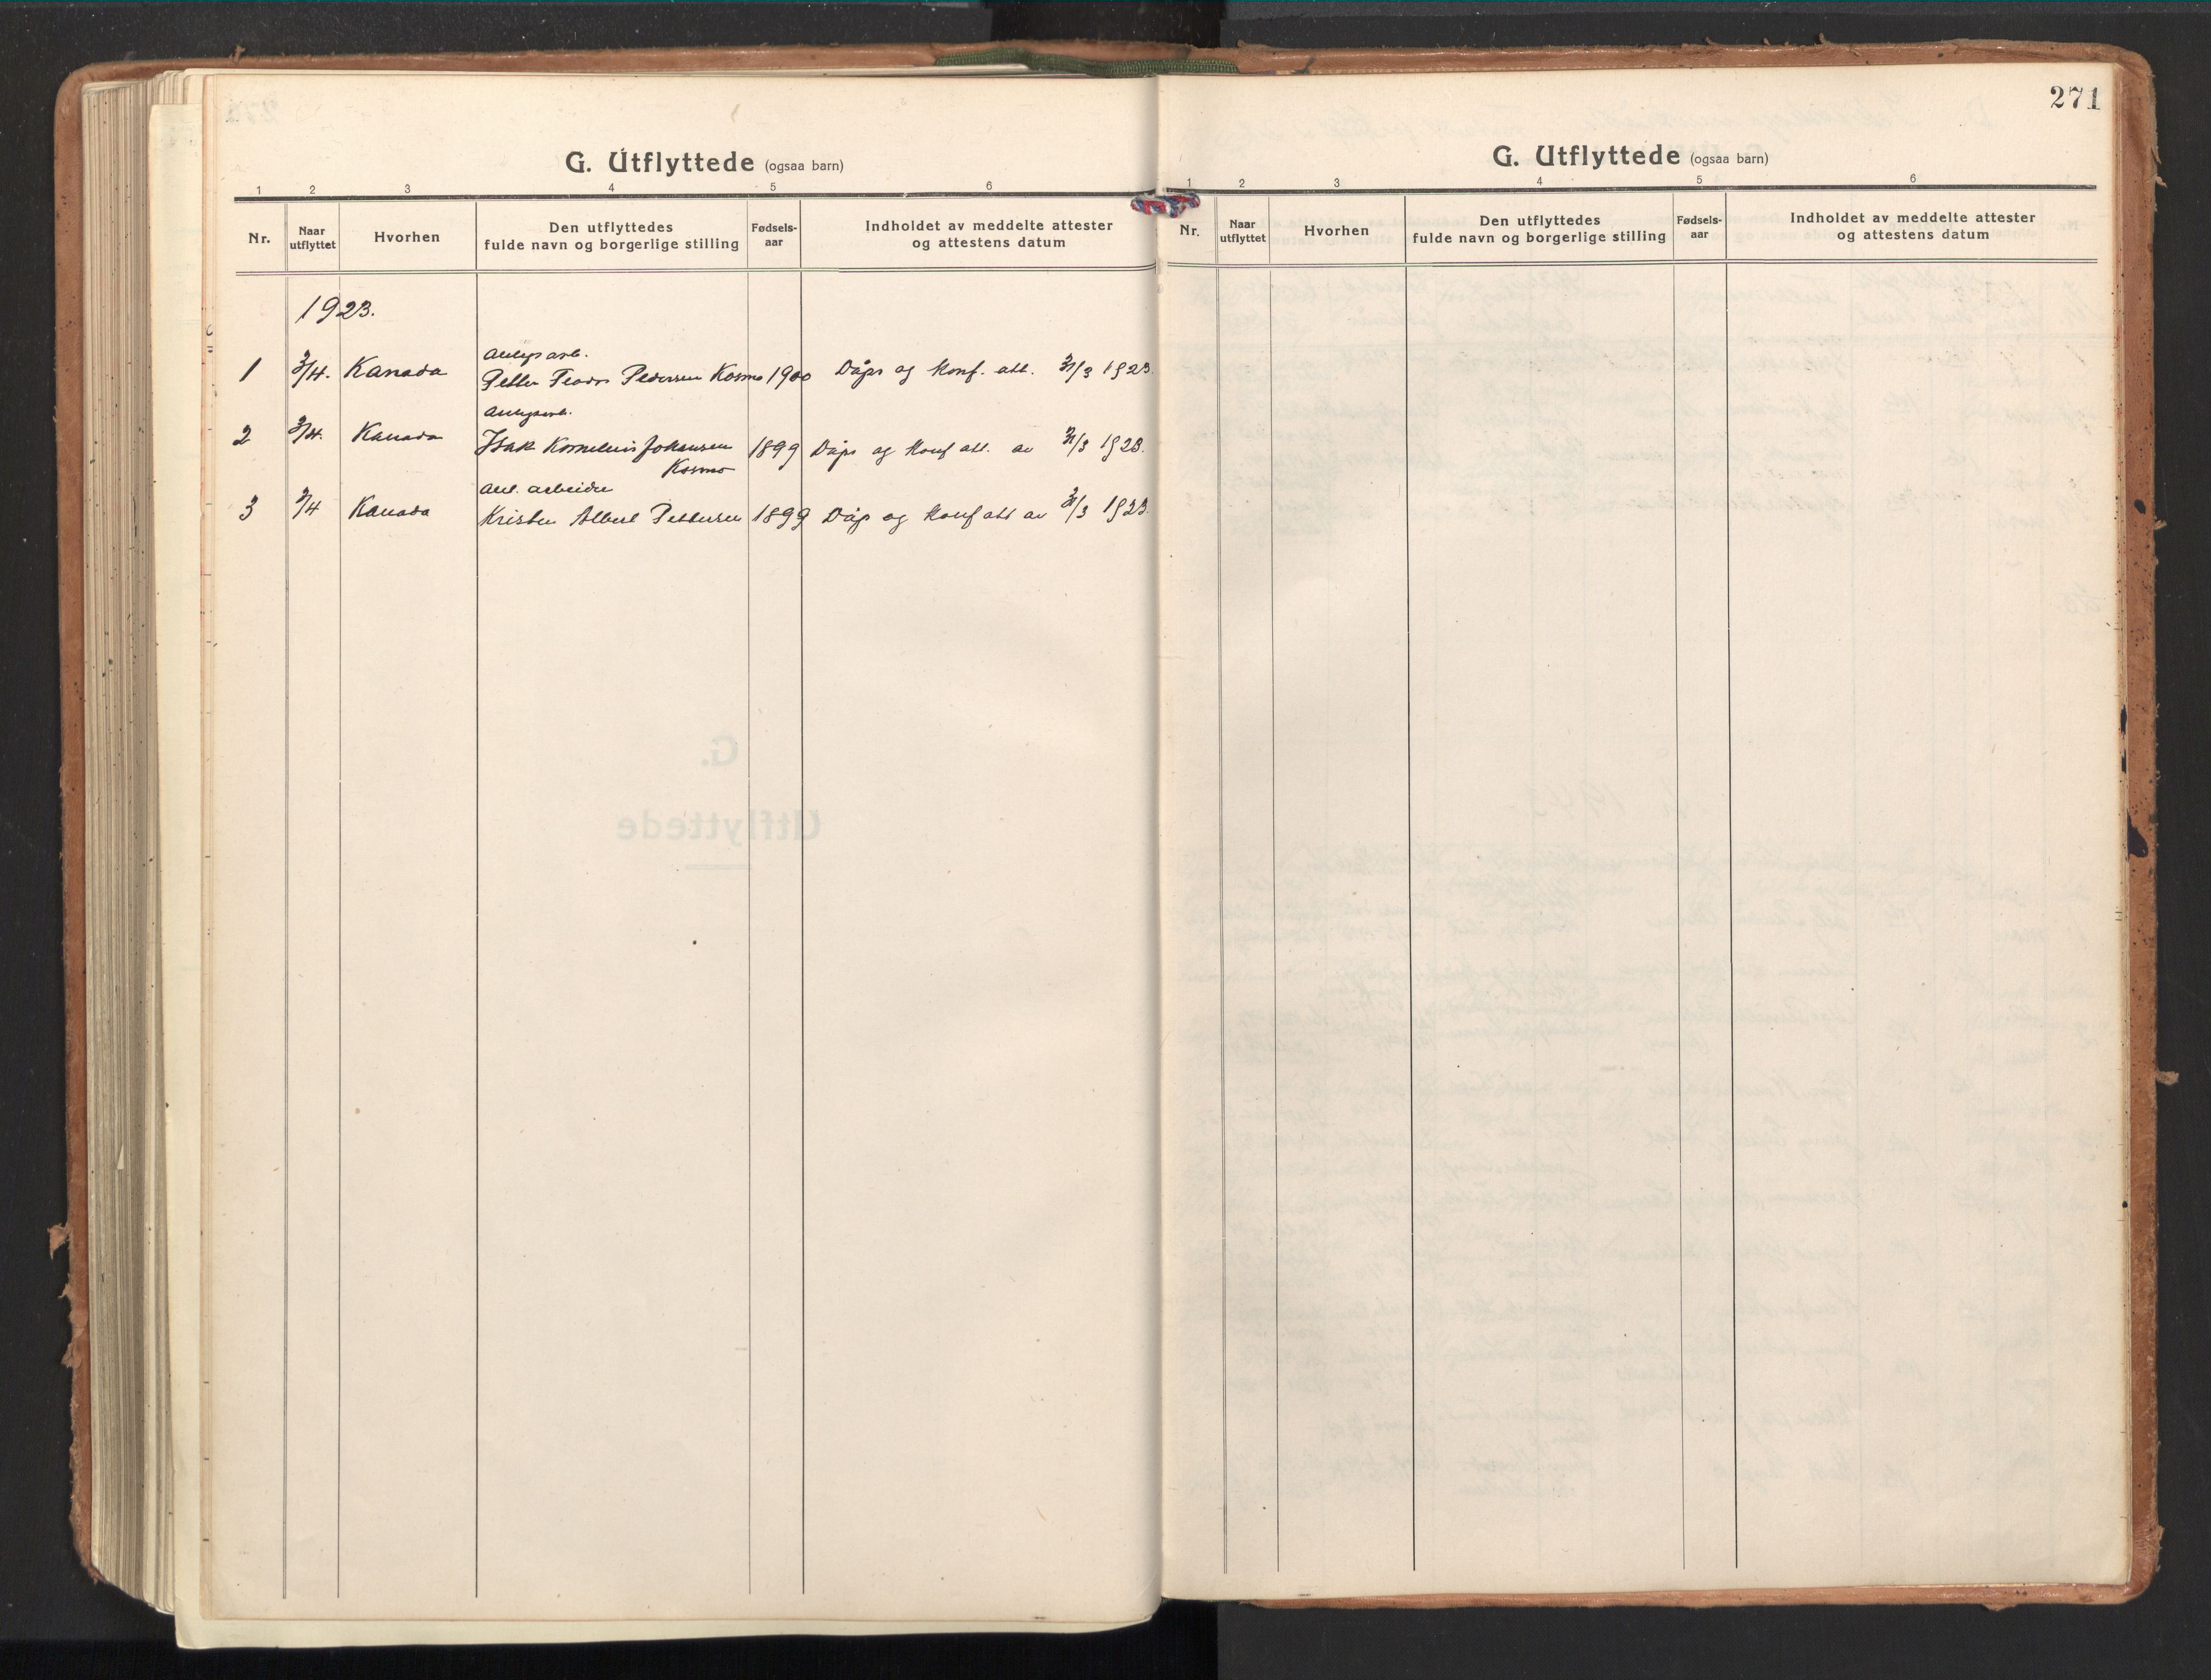 G. Utflyttede (ogsaa barn)
1 2 3 4 5 6
Nr. Naar utflyttet Hvorhen Den utflyttedes fulde navn og borgerlige stilling Fødsels-aar Indholdet av meddelte attester og attestens datum
1923.
anlegsarb.
1 3/4. Kanada Petter Teodor Pedersen Kosmo 1900 Dåps og konf. att. 31/3 1923.
anlegsarb.
2 3/4. Kanada Isak Kornelius Johansen 1899 Dåps og konf att. av 31/3 1923.
Kosmo
anl. arbeider
3 3/4 Kanada Kristen Albert Pettersen 1899 Dåp og konf att av 31/3 1923.
271
G. Utflyttede (ogsaa barn)
1 2 3 4 5 6
Nr. Naar utflyttet Hvorhen Den utflyttedes fulde navn og borgerlige stilling Fødsels-aar Indholdet av meddelte attester og attestens datum